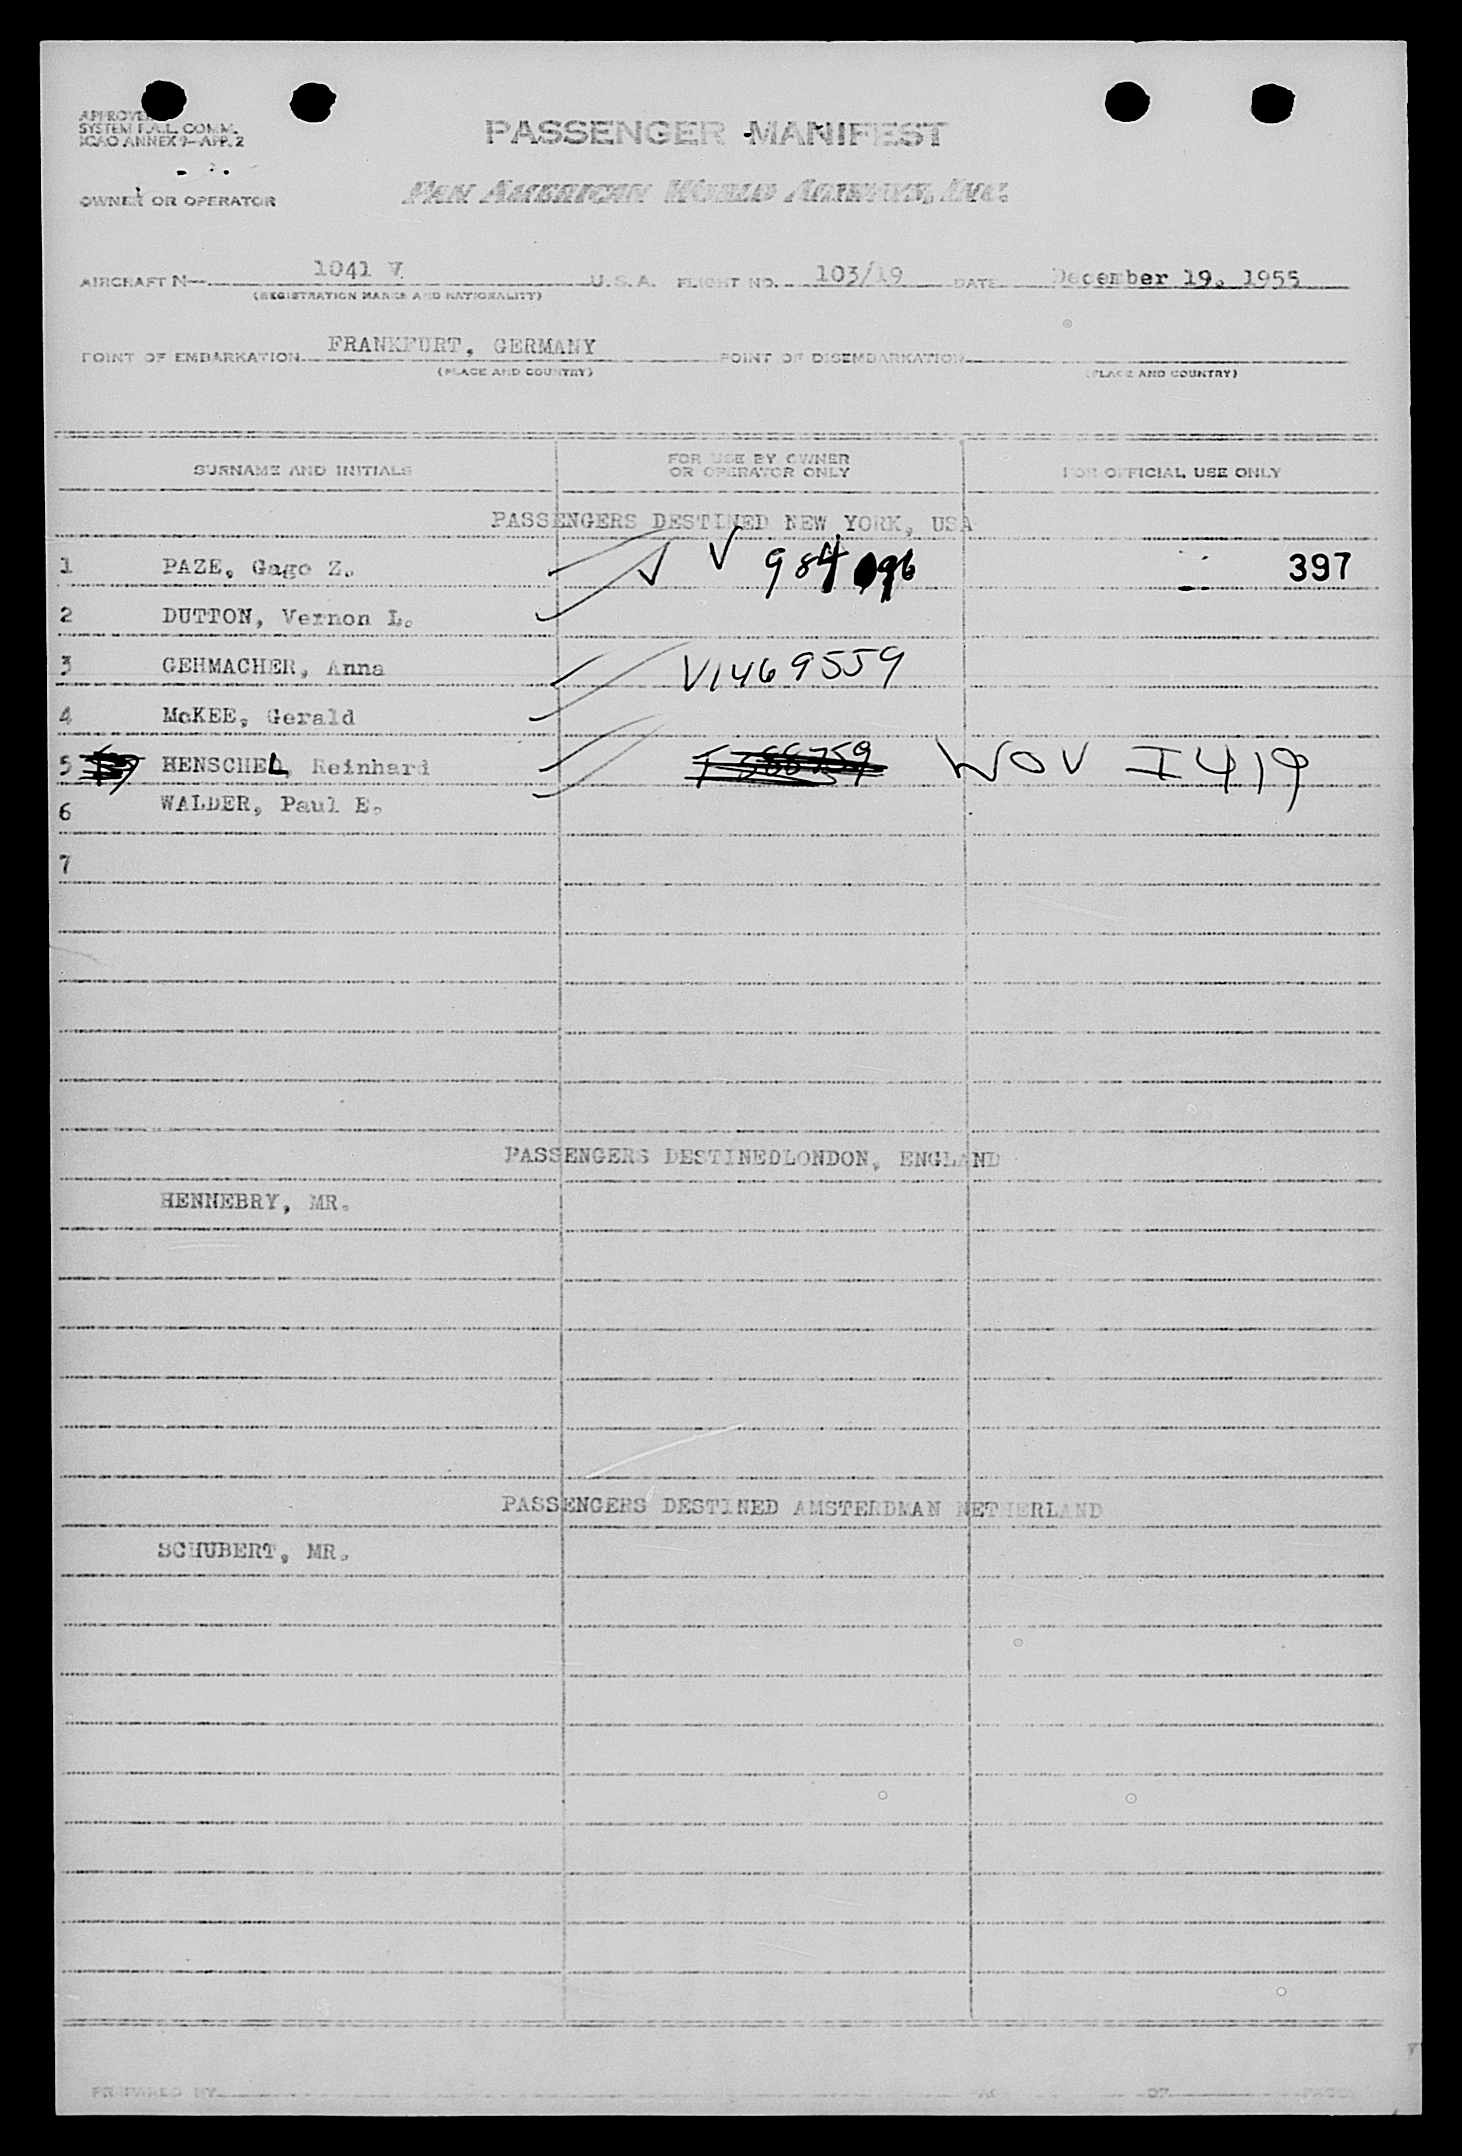 APPROVED
SYSTEM F.A.L. COMM.
ICAO ANNEX 9-APP. 2
PASSENGER MANIFEST
OWNER OR OPERATOR PAN AMERICAN WORLD AIRWAYS, INC.
AIRCRAFT N— 1041 V U.S.A. FLIGHT NO. 103/19 DATE December 19, 1955
(REGISTRATION MARKS AND NATIONALITY)
POINT OF EMBARKATION FRANKFURT, GERMANY POINT OF DISEMBARKATION
(PLACE AND COUNTRY) (PLACE AND COUNTRY)
SURNAME AND INITIALS FOR USE BY OWNER OR OPERATOR ONLY FOR OFFICIAL USE ONLY
PASSENGERS DESTINED NEW YORK, USA
1 PAZE, Gago Z. V 984 096 397
2 DUTTON, Vernon L.
3 GEHMACHER, Anna V1469559
4 McKEE, Gerald
5 HENSCHEL, Reinhard WOV I419
6 WALDER, Paul E.
7
PASSENGERS DESTINEDLONDON, ENGLAND
HENNEBRY, MR.
PASSENGERS DESTINED AMSTERDMAN NETHERLAND
SCHUBERT, MR.
PREPARED BY PAGE OF PAGES